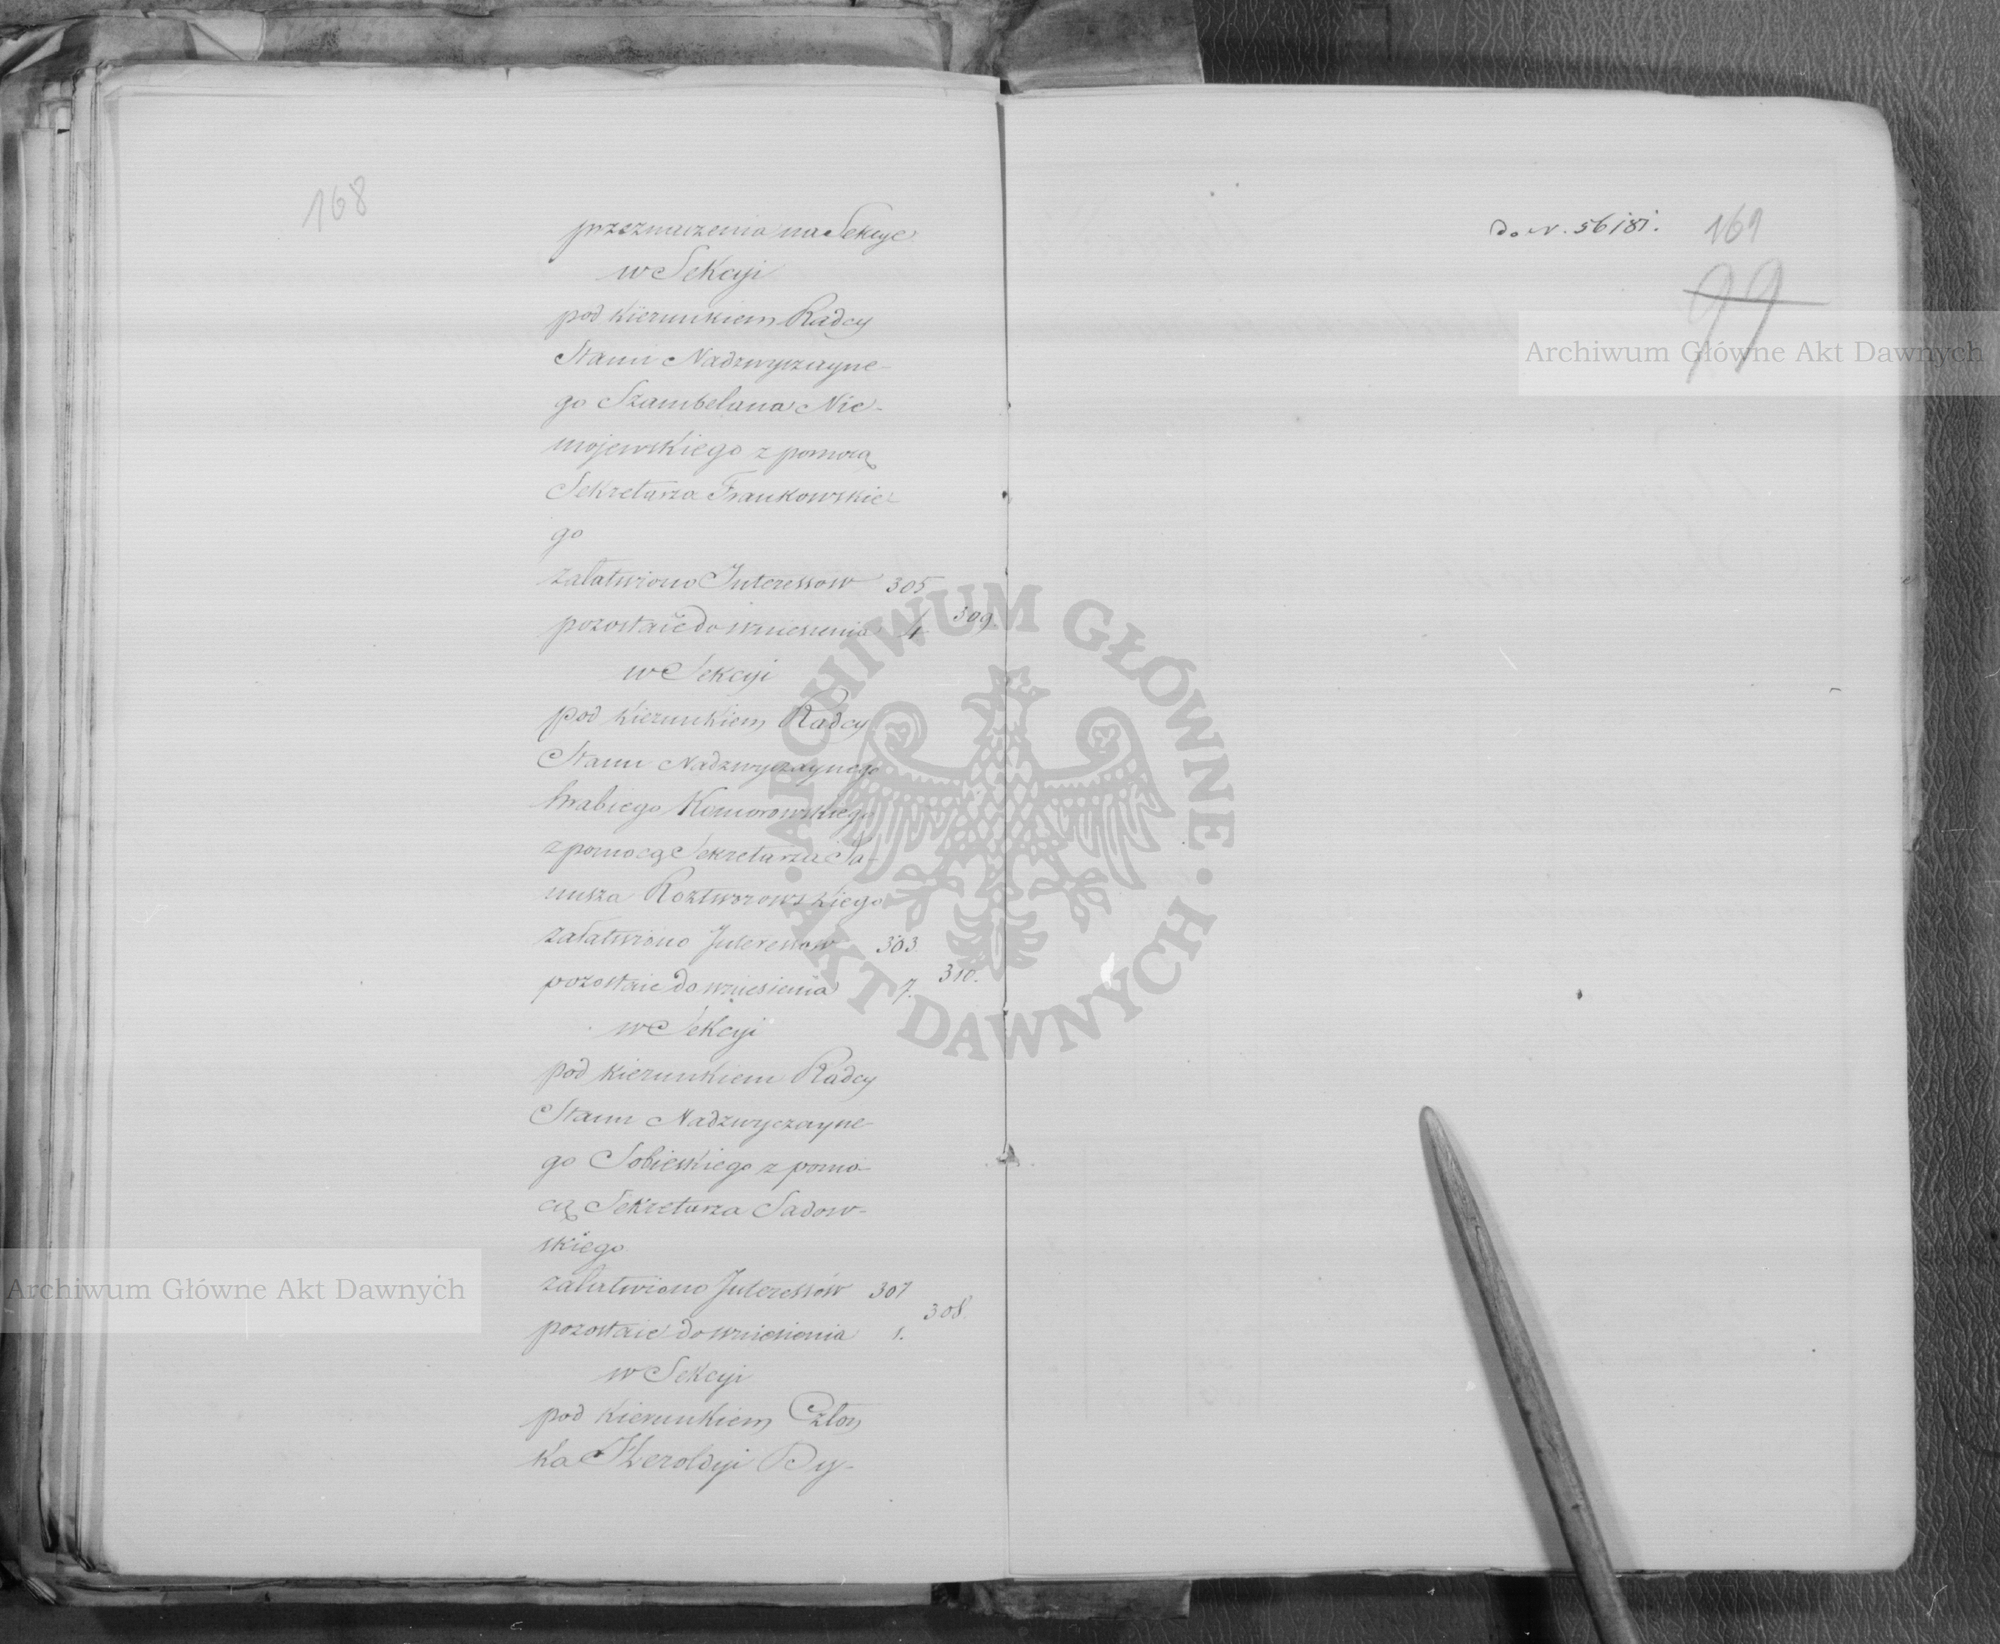 168
przeznaczenia na Sekcye
w Sekcyi
pod kierunkiem Radcy
Stanu Nadzwyczayne-
go Szambelana Nie-
mojewskiego z pomocą
Sekretarza Frankowskie-
go
załatwiono Interessow 305
pozostaie do wniesienia 4 309
w Sekcyi
pod kierunkiem Radcy
Stanu Nadzwyczaynego
hrabiego Komorowskiego
z pomocą Sekretarza Ja-
nusza Roztworowskiego
załatwiono Interessow 303.
pozostaie do wniesienia 7. 310.
w Sekcyi
pod kierunkiem Radcy
Stanu Nadzwyczayne-
go Sobieskiego z pomo-
cą Sekretarza Sadow-
skiego
załatwiono Interessów 307
pozostaie do wniesienia 1. 308.
w Sekcyi
pod kierunkiem Człon
ka Heroldyi By-
do N. 56/81.
169
99
Archiwum Główne Akt Dawnych
ARCHIWUM GŁÓWNE · AKT DAWNYCH ·
Archiwum Główne Akt Dawnych